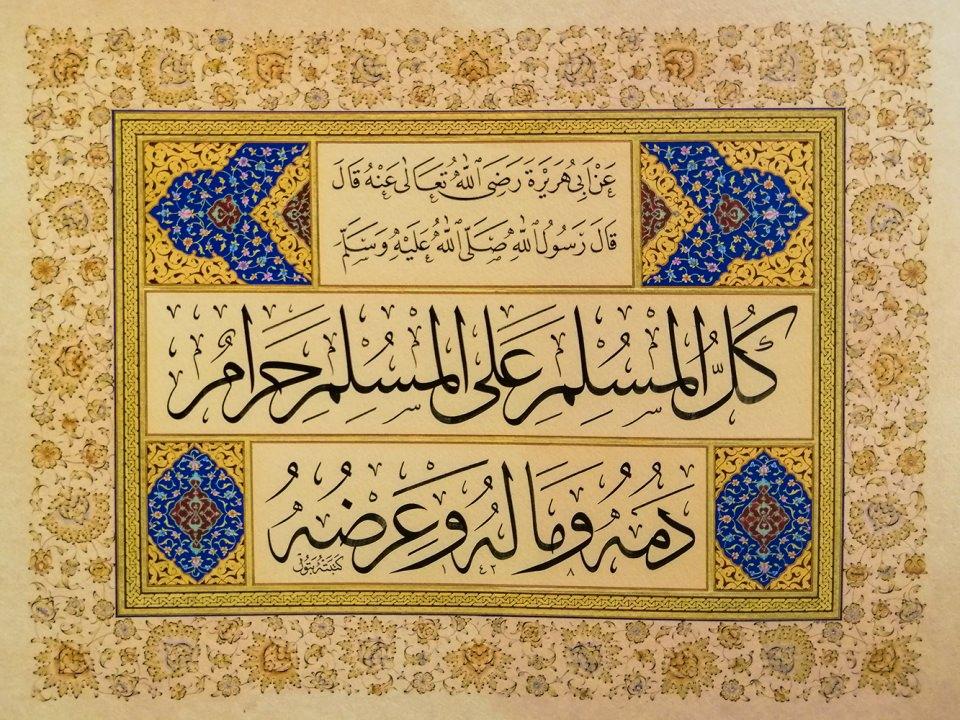 عَنْ أَبِي هُرَيْرَةَ رَضِيَ اللّٰهُ تَعَالٰى عَنْهُ قَالَ
قَالَ رَسُولُ اللّٰهِ صَلَّى اللّٰهُ عَلَيْهِ وَسَلَّمَ
كُلُّ الْمُسْلِمِ عَلَى الْمُسْلِمِ حَرَامٌ
دَمُهُ وَمَالُهُ وَعِرْضُهُ
كَتَبَتْهُ ١٤٢٨